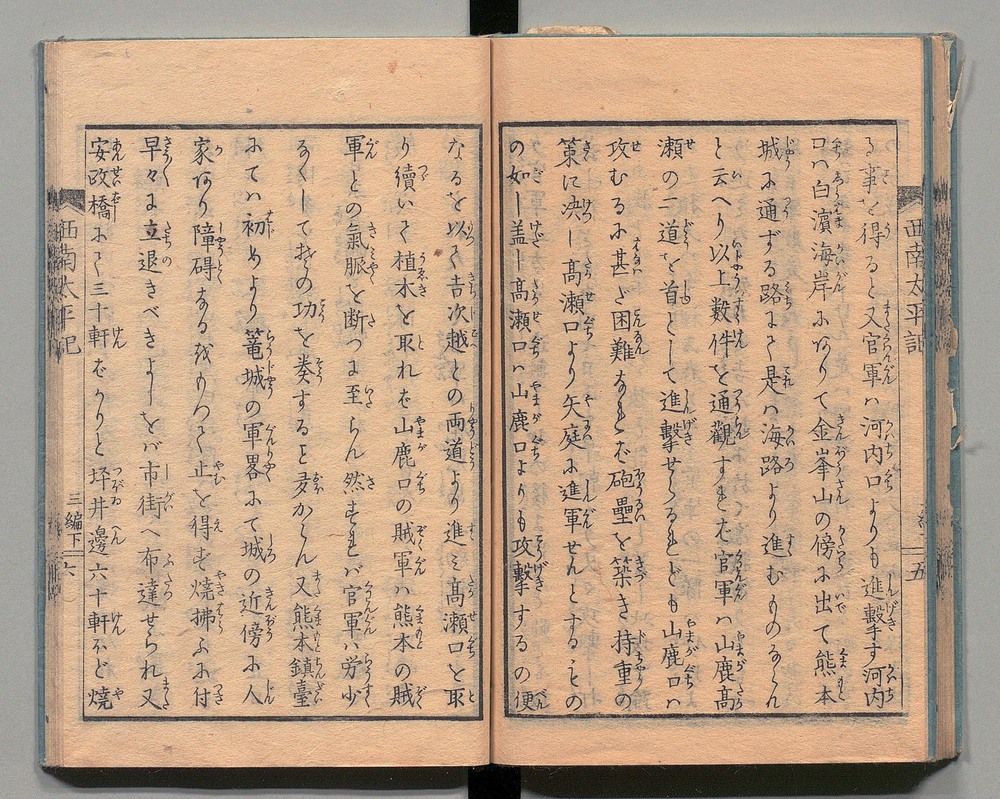 る事を得ると又官軍ハ河内口よりも進撃す河内
口ハ白濱海岸にありて金峯山の傍に出て熊本
城に通ずる路にて是ハ海路より進むものならん
と云へり以上数件を通観すれバ官軍ハ山鹿髙
瀬の二道を首として進撃せらるれども山鹿口ハ
攻むるに甚だ困難なれバ砲壘を築き持重の
策に决し髙瀬口より矢庭に進軍せんとするもの
の如し盖し髙瀬口ハ山鹿口よりも攻撃するの便
なるを以て吉次越との両道より進ミ髙瀬口を取
り續いて植木を取れバ山鹿口の賊軍ハ熊本の賊
軍との氣脈を断つに至らん然すれバ官軍ハ労少
なくして其の功を奏すること多からん又熊本鎮臺
にてハ初めより篭城の軍畧にて城の近傍に人
家あり障碍なるをもつて止を得ず焼拂ふに付
早々に立退きべきよしをバ市街へ布達せられ又
安政橋にて三十軒ばかりと坪井邊六十軒ほど焼
西南太平記
五
西南太平記
三編下
六